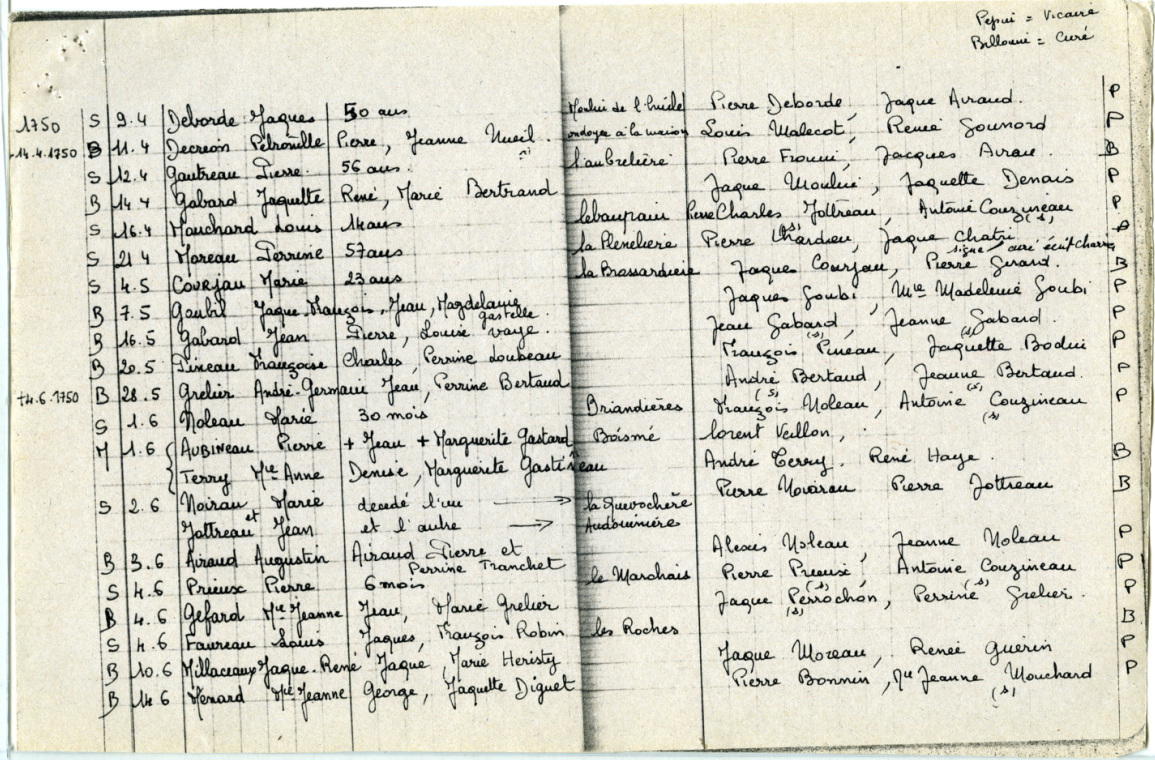 Pepin = Vicaire
Billonni = Curé
1750 S 9.4 Deborde Jaques 50 ans Moulin de l'huile Pierre Deborde, Jaque Airaud. P
+14.4.1750 B 11.4 Decreon Pétronille Pierre, Jeanne Nueil. ondoyée à la maison Louis Malecot, Renée Gounord P
S 12.4 Gautreau Pierre. 56 ans. l'aubrelière Pierre Frouin, Jacques Airau. B
B 14.4 Gabard Jaquette René, Marie Bertrand Jaque Moulin, Jaquette Denais P
S 16.4 Mouchard Louis 14 ans lebaupain Pierre Charles Jottreau, Antoine Couzineau (s) P
S 21.4 Moreau Perrine 57 ans la Plenelière Pierre Chardieu, (s) Jaque Chatri P
signe / curé écrit Charrié
S 4.5 Courjau Marie 23 ans la Brossardière Jaques Courjau, Pierre Girard. B
B 7.5 Goubil Jaque-François, Jean, Magdelaine gastelle. Jaques Goubi, Mie Madeleine Goubi P
B 16.5 Gabard Jean Pierre, Louise Vaye. Jean Gabard, (s) Jeanne Gabard. (s) P
B 20.5 Pineau Françoise Charles, Perrine Loubeau François Pineau, Jaquette Bodin P
+4.6.1750 B 28.5 Grelier André-Germain Jean, Perrine Bertaud André Bertaud, (s) Jeanne Bertaud. (s) P
S 1.6 Noleau Marie 30 mois Briandières François Noleau, Antoine Couzineau (s) P
M 1.6 { Aubineau Pierre + Jean + Marguerite Gastard Boismé lorent Veillon,
Terry Mie Anne Denise, Marguerite Gastineau André Terry. René Haye. B
S 2.6 Noirau Marie decedé l'un → la Quevochère Pierre Noirau Pierre Jottreau B
et Jottreau Jean et l'autre → Audouinière
B 3.6 Airaud Augustin Airaud Pierre et Perrine Tranchet Alexis Noleau, Jeanne Noleau P
S 4.6 Prieux Pierre 6 mois le Marchais Pierre Prieux, (s) Antoine Couzineau (s) P
B 4.6 Gefard Mie Jeanne Jean, Marie Grelier Jaque Perrochon, (s) Perrine Grelier. P
S 4.6 Faureau Louis Jaques, François Robin les Roches B
B 10.6 Millaceaux Jaque-René Jaque, Marie Heristy Jaque Moreau, Renée Guerin P
B 14.6 Menard Mie Jeanne George, Jaquette Diguet Pierre Bonnin, Mie Jeanne Mouchard (s) P